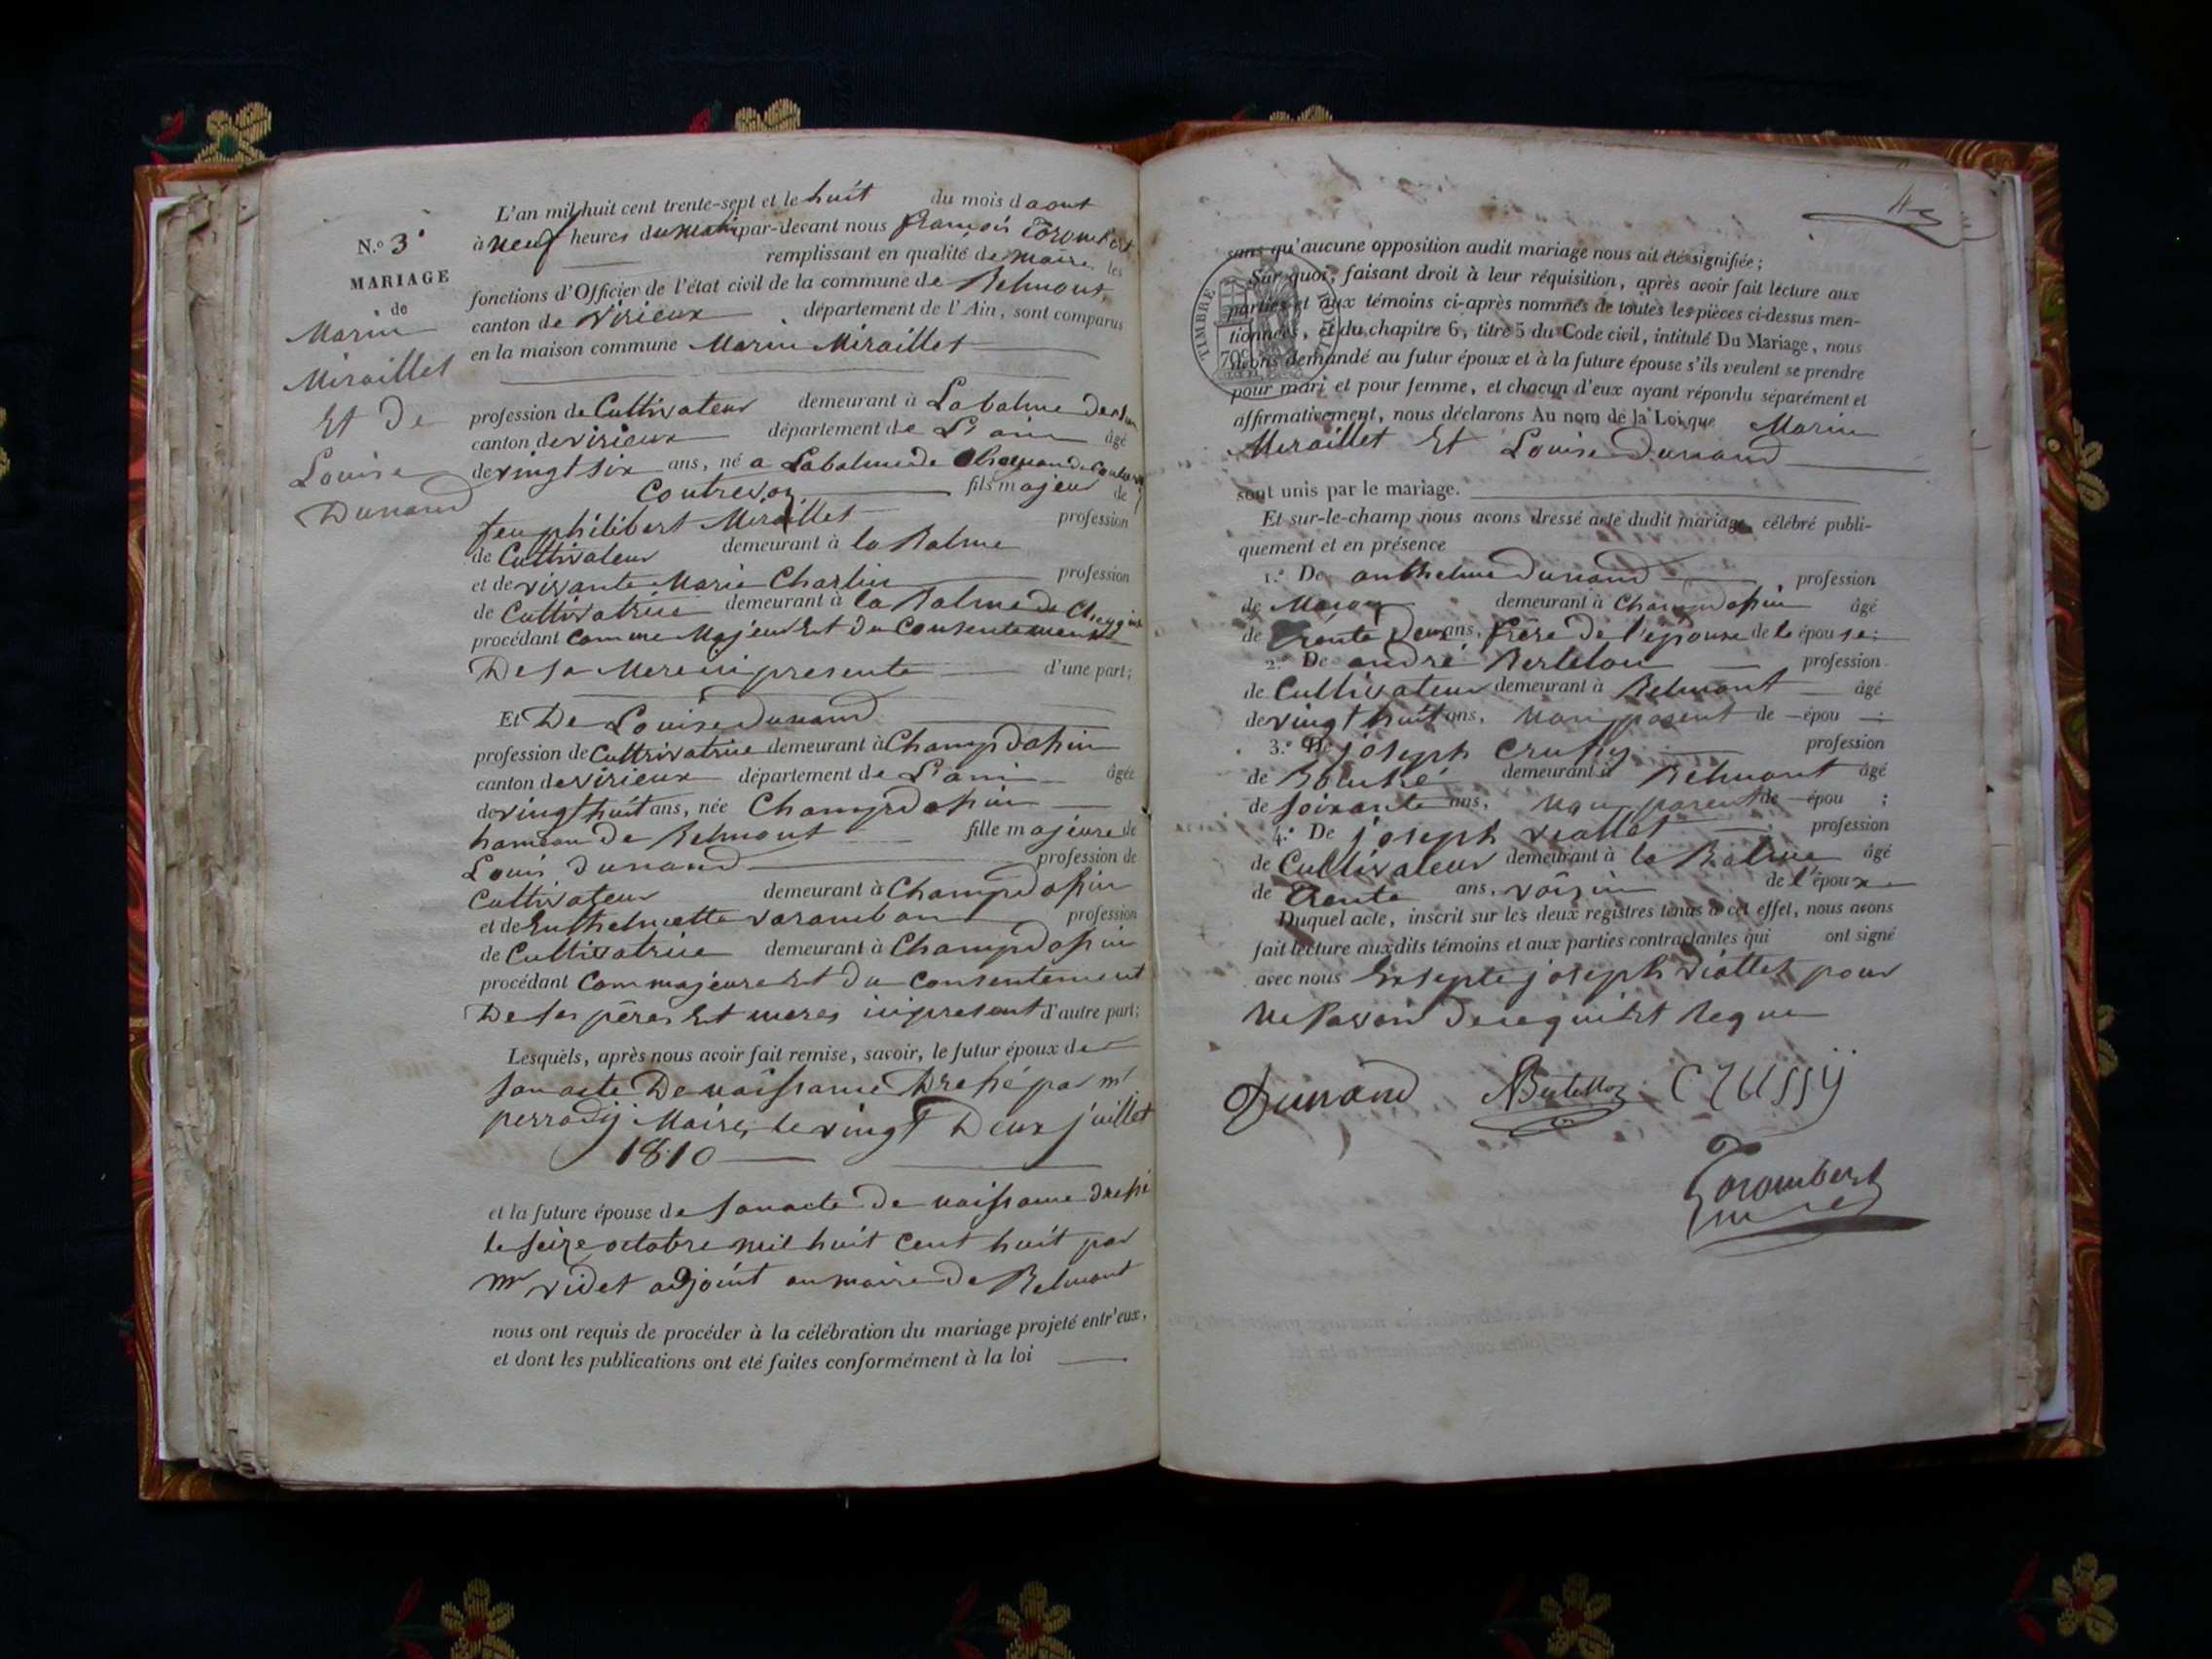 N.º 3.
MARIAGE
de
Marin
Miraillet
Et De
Louise
Dunand
L'an mil huit cent trente-sept et le huit du mois d aout
à neuf heures du matin par-devant nous françois Torombert
remplissant en qualité de maire les
fonctions d'Officier de l'état civil de la commune de Belmont,
canton de virieux département de l'Ain, sont comparus
en la maison commune Marin Miraillet
profession de Cultivateur demeurant à Labalme
canton de virieux département de L'ain âgé
de vingt six ans, né a Labalme de
Contrevoz fils majeur de
feu philibert Miraillet profession
de Cultivateur demeurant à la Balme
et de vivante Marie Charlin profession
de Cultivatrice demeurant à la Balme de
procédant comme Majeur Et du Consentement
De Sa Mere ici presente d'une part;
Et De Louise Dunand
profession de Cultrivatrice demeurant à Champdosin
canton de virieux département de L'ain âgée
de vingt huit ans, née Champdosin
hameau de Belmont fille majeure de
Louis Dunand profession de
Cultivateur demeurant à Champdosin
et de Enthelmette varambon profession
de Cultivatrice demeurant à Champdosin
procédant Com majeure Et du Consentement
De ses pères Et meres ici present d'autre part;
Lesquels, après nous avoir fait remise, savoir, le futur époux de
son acte De naissance Dressé par mr
perrody Maire, le vingt Deux juillet
1810
et la future épouse de son acte de naissance dressé
le seize octobre mil huit cent huit par
mr videt adjoint au maire de Belmont
nous ont requis de procéder à la célébration du mariage projeté entr'eux,
et dont les publications ont eté faites conformément à la loi
TIMBRE
sans qu'aucune opposition audit mariage nous ait été signifiée;
Sur quoi, faisant droit à leur réquisition, après avoir fait lecture aux
parties et aux témoins ci-après nommés de toutes les pièces ci-dessus men-
tionnées, et du chapitre 6, titre 5 du Code civil, intitulé Du Mariage, nous
avons demandé au futur époux et à la future épouse s'ils veulent se prendre
pour mari et pour femme, et chacun d'eux ayant répondu séparément et
affirmativement, nous déclarons Au nom de la Loi que Marin
Miraillet Et Louise Dunand
sont unis par le mariage.
Et sur-le-champ nous avons dressé acte dudit mariage célébré publi-
quement et en présence
1.º De anthelme Dunand profession
de Maçon demeurant à Champdosin âgé
de trente Deux ans, frère De l'épouse de le épou se;
2.º De andré Bertelon profession
de Cultivateur demeurant à Belmont âgé
de vingt huit ans, Non parent de épou ;
3.º De joseph Crussy profession
de demeurant à Belmont âgé
de soixante ans, Non parent de épou ;
4.º De joseph viallet profession
de Cultivateur demeurant à la Balme âgé
de Trente ans, voisin de l'époux
Duquel acte, inscrit sur les deux registres tenus à cet effet, nous avons
fait lecture auxdits témoins et aux parties contractantes qui ont signé
avec nous Exsepte joseph viallet pour
Ne Savoir De ce quiEt Requi
Dunand ABertellon Crussy
Torombert
maire